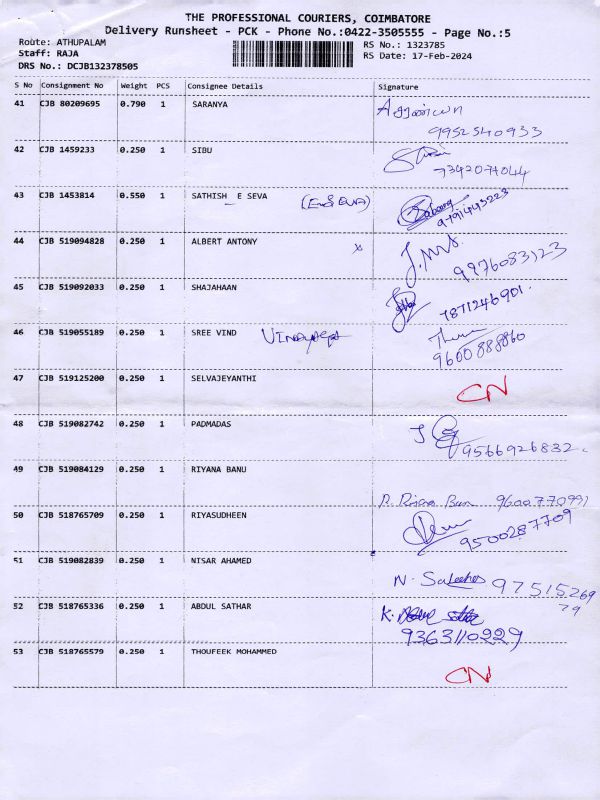 THE PROFESSIONAL COURIERS, COIMBATORE
Delivery Runsheet - PCK - Phone No.:0422-3505555 - Page No.:5
Route: ATHUPALAM RS No.: 1323785
Staff: RAJA RS Date: 17-Feb-2024
DRS No.: DCJB132378505
S No Consignment No Weight PCS Consignee Details Signature
41 CJB 80209695 0.790 1 SARANYA
9952540933
42 CJB 1459233 0.250 1 SIBU
7392071044
43 CJB 1453814 0.550 1 SATHISH E SEVA
9791443223
44 CJB 519094828 0.250 1 ALBERT ANTONY x
9976083123
45 CJB 519092033 0.250 1 SHAJAHAAN
7871246901.
46 CJB 519055189 0.250 1 SREE VIND
9600888860
47 CJB 519125200 0.250 1 SELVAJEYANTHI
CN
48 CJB 519082742 0.250 1 PADMADAS
9566926832.
49 CJB 519084129 0.250 1 RIYANA BANU
9600770991
50 CJB 518765709 0.250 1 RIYASUDHEEN
9500287709
51 CJB 519082839 0.250 1 NISAR AHAMED
97515269
79
52 CJB 518765336 0.250 1 ABDUL SATHAR
9363110229
53 CJB 518765579 0.250 1 THOUFEEK MOHAMMED
CN